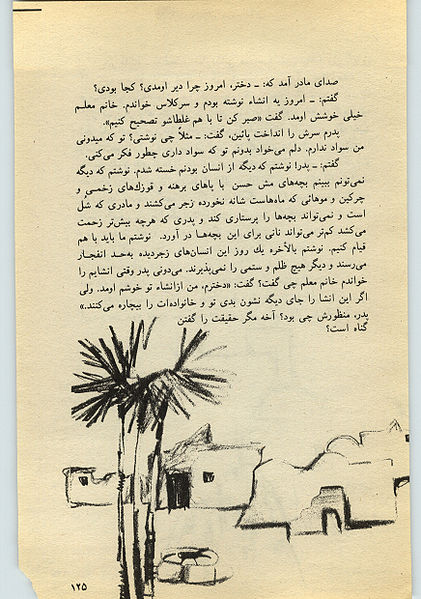 صدای مادر آمد که: ـ دختر، امروز چرا دیر اومدی؟ کجا بودی؟
گفتم: ـ امروز یه انشاء نوشته بودم و سرکلاس خواندم. خانم معلم
خیلی خوشش اومد. گفت «صبر کن تا با هم غلطاشو تصحیح کنیم».
پدرم سرش را انداخت پائین، گفت: ـ مثلاً چی نوشتی؟ تو که میدونی
من سواد ندارم. دلم می‌خواد بدونم تو که سواد داری چطور فکر می‌کنی.
گفتم: ـ پدر! نوشتم که دیگه از انسان بودنم خسته شدم. نوشتم که دیگه
نمی‌تونم ببینم بچه‌های مش حسن با پاهای برهنه و قوزک‌های زخمی و
چرکین و موهائی که ماه‌هاست شانه نخورده زجر می‌کشند و مادری که شل
است و نمی‌تواند بچه‌ها را پرستاری کند و پدری که هرچه بیش‌تر زحمت
می‌کشد کم‌تر می‌تواند نانی برای این بچه‌ها در آورد. نوشتم ما باید با هم
قیام کنیم. نوشتم بالأخره یك روز این انسان‌های زجردیده به‌حد انفجار
می‌رسند و دیگر هیچ ظلم و ستمی را نمی‌پذیرند. می‌دونی پدر وقتی انشایم را
خواندم خانم معلم چی گفت؟ گفت: «دخترم، من ازانشاء تو خوشم اومد. ولی
اگر این انشا را جای دیگه نشون بدی تو و خانواده‌ات را بیچاره می‌کنند.»
پدر، منظورش چی بود؟ آخه مگر حقیقت را گفتن
گناه است؟
۱۲۵